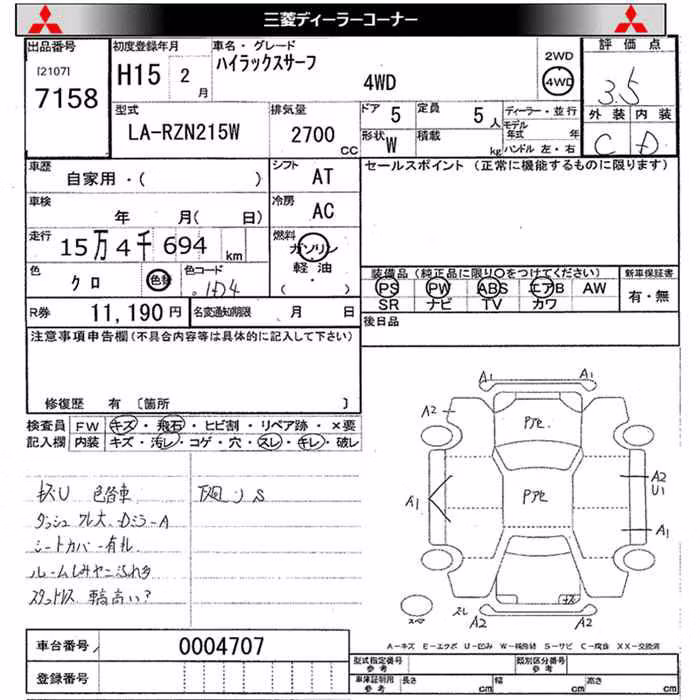 三菱ディーラーコーナー
出品番号
[2107]
7158
初度登録年月
H15 2 月
車名・グレード
ハイラックスサーフ
4WD
2WD
4WD
評価点
3.5
外装 内装
C D
型式
LA-RZN215W
排気量
2700 CC
ドア 5
定員 5 人
形状 W
積載 kg
ディーラー・並行
モデル年式 年
ハンドル 左・右
車歴
自家用・( )
シフト AT
セールスポイント (正常に機能するものに限ります)
車検
年 月( 日)
冷房 AC
走行
15万4千694 km
燃料
ガソリン
軽油
( )
色
クロ
色替
色コード
1D4
装備品(純正品に限り○をつけてください)
新車保証書
PS PW ABS エアB AW
SR ナビ TV カワ
有・無
R券 11,190円
名変通知期限 月 日
後日品
注意事項申告欄(不具合内容等は具体的に記入して下さい)
修復歴 有 〔箇所 〕
検査員記入欄
FW キズ・飛石・ヒビ割・リペア跡・×要
内装 キズ・汚レ・コゲ・穴・スレ・キレ・破レ
キズU 色替車
下廻りS
ダッシュワレ大、DミラーA
シートカバー有り
ルームしみヤニ汚れ多
スタットレス 車高高い?
A1 A1
A2
Pアセ
Pアセ
A1
A2
U1
A1
キズ
スレ
A2 A2
スペア
A-キズ E-エクボ U-凹み W-補修跡 S-サビ C-腐食 XX-交換済
車台番号 0004707
登録番号
型式指定番号 参考
類別区分番号 参考
車庫証明用 参考
長さ cm 幅 cm 高さ cm